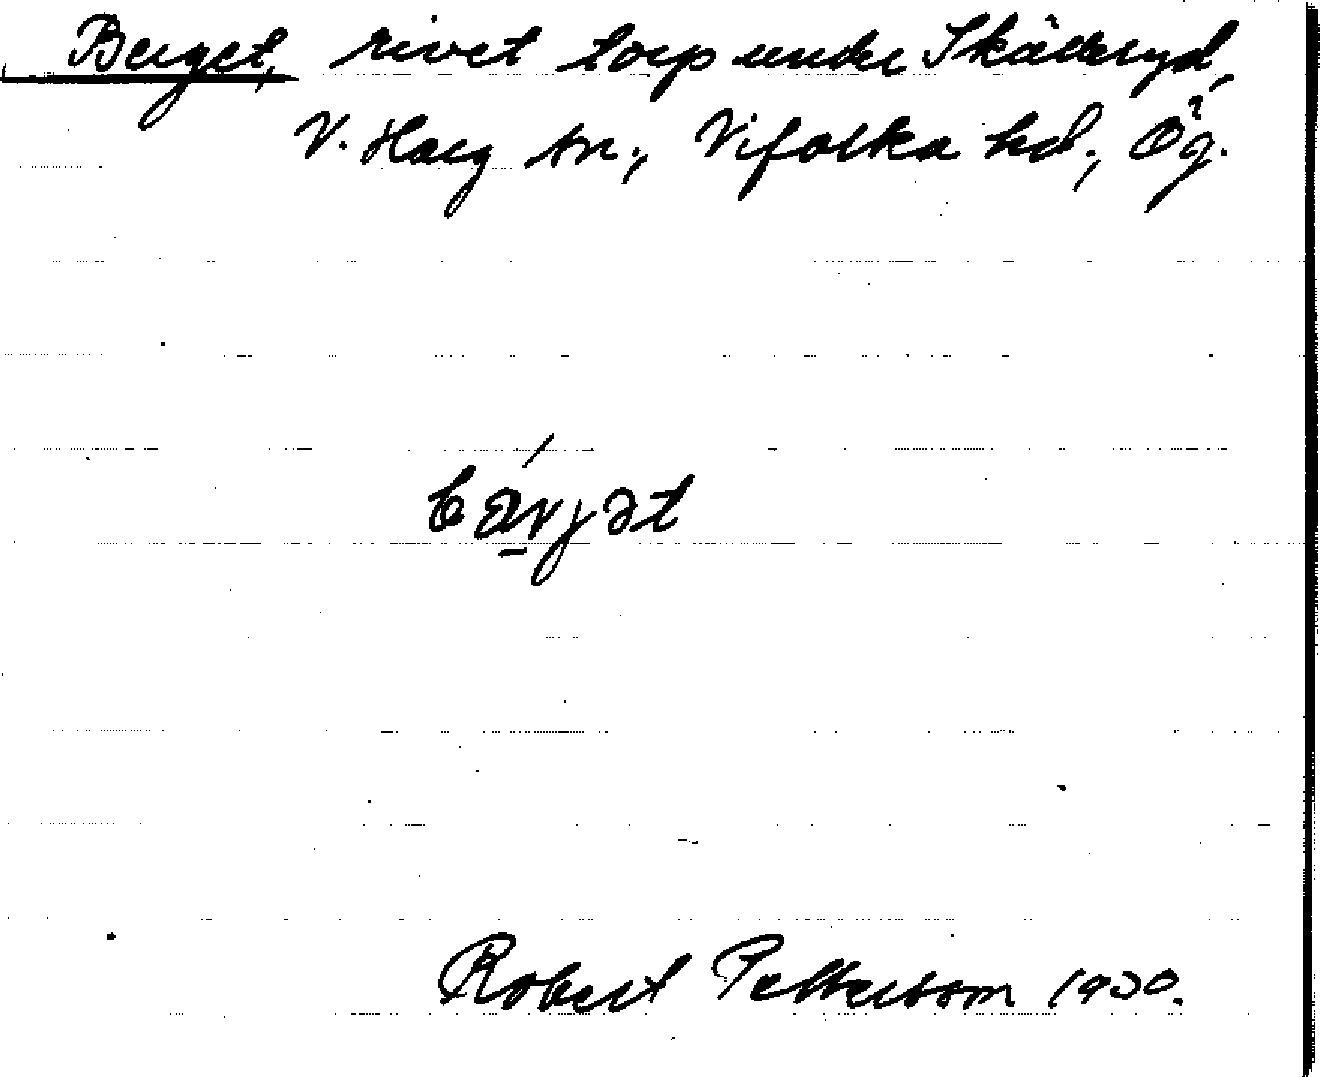 Berget, rivet torp under Skälleryd,
V. Harg sn., Vifolka hd., Ög.
Robert Pettersson 1930.